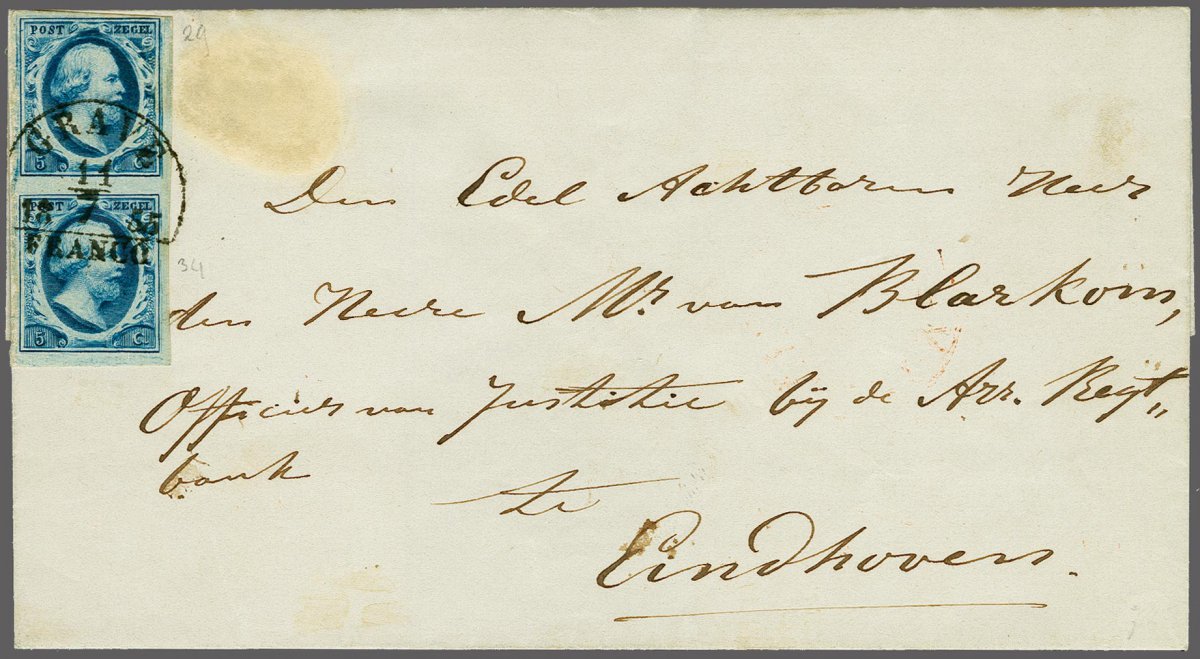 POST ZEGEL
5 C
GRAVE
11
7
18 55
FRANCO
POST ZEGEL
5 C
29
34
Den Edel Achtbaren Heer
den Heere Mr. van Blarkom,
Officier van Justitie bij de Arr. Regt„
bank
te
Eindhoven.